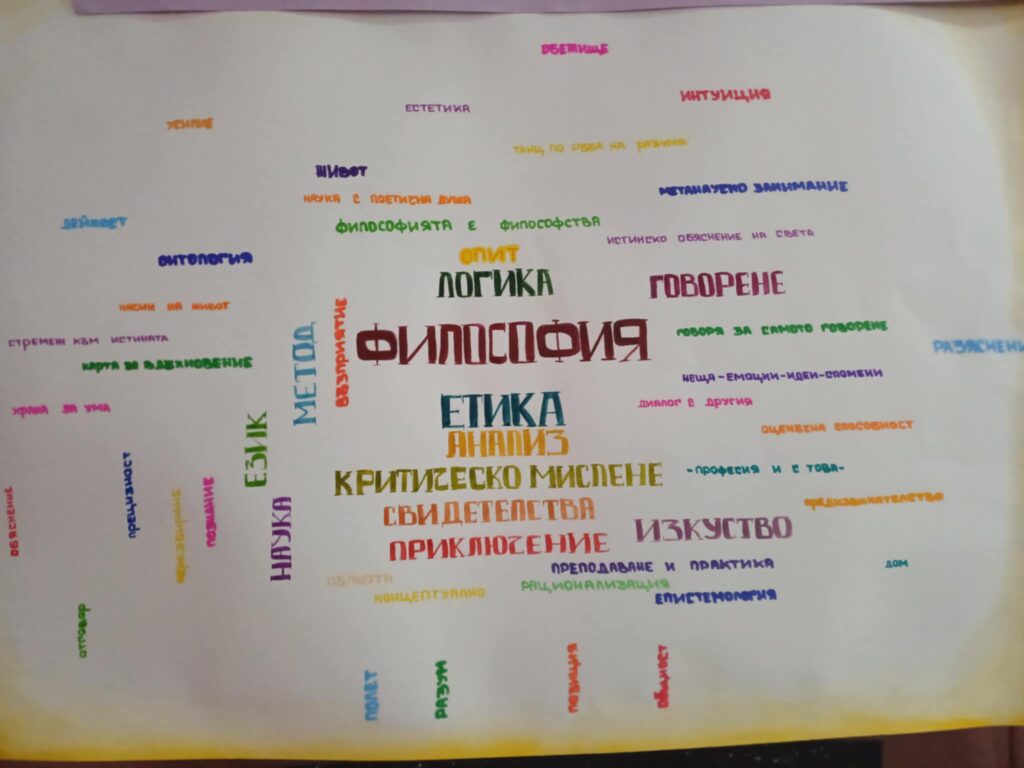 ОБЕЖИЩЕ
ИНТУИЦИЯ
ЕСТЕТИКА
УСИЛИЕ
ТАНЦ ПО РЪБА НА РАЗУМА
ЖИВОТ
МЕТАНАУЧНО ЗАНИМАНИЕ
НАУКА С ПОЕТИЧНА ДУША
ДЕЙНОСТ
ФИЛОСОФИЯТА Е ФИЛОСОФСТВА
ИСТИНСКО ОБЯСНЕНИЕ НА СВЕТА
ОПИТ
ОНТОЛОГИЯ
ЛОГИКА
ГОВОРЕНЕ
НАЧИН НА ЖИВОТ
ФИЛОСОФИЯ
ГОВОРЯ ЗА САМОТО ГОВОРЕНЕ
СТРЕМЕЖ КЪМ ИСТИНАТА
МЕТОД
ВЪЗПРИЯТИЕ
РАЗЯСНЕНИ
КАРТА ЗА ВДЪХНОВЕНИЕ
НЕЩА-ЕМОЦИИ-ИДЕИ-СПОМЕНИ
ХРАНА ЗА УМА
ЕТИКА
ДИАЛОГ С ДРУГИЯ
ОЦЕНЪЧНА СПОСОБНОСТ
АНАЛИЗ
ЕЗИК
КРИТИЧЕСКО МИСЛЕНЕ
-ПРОФЕСИЯ И С ТОВА-
ОБЯСНЕНИЕ
ПРЕЦИЗНОСТ
НЕРАЗБИРАНЕ
ПОЗНАНИЕ
НАУКА
СВИДЕТЕЛСТВА
ПРЕДИЗВИКАТЕЛСТВО
ИЗКУСТВО
ПРИКЛЮЧЕНИЕ
ПРЕПОДАВАНЕ И ПРАКТИКА
ДОМ
ПЪЛНОТА
РАЦИОНАЛИЗАЦИЯ
КОНЦЕПТУАЛНО
ЕПИСТЕМОЛОГИЯ
ОТГОВОР
ПОЛЕТ
РАЗУМ
ПОЗИЦИЯ
ОБЩНОСТ